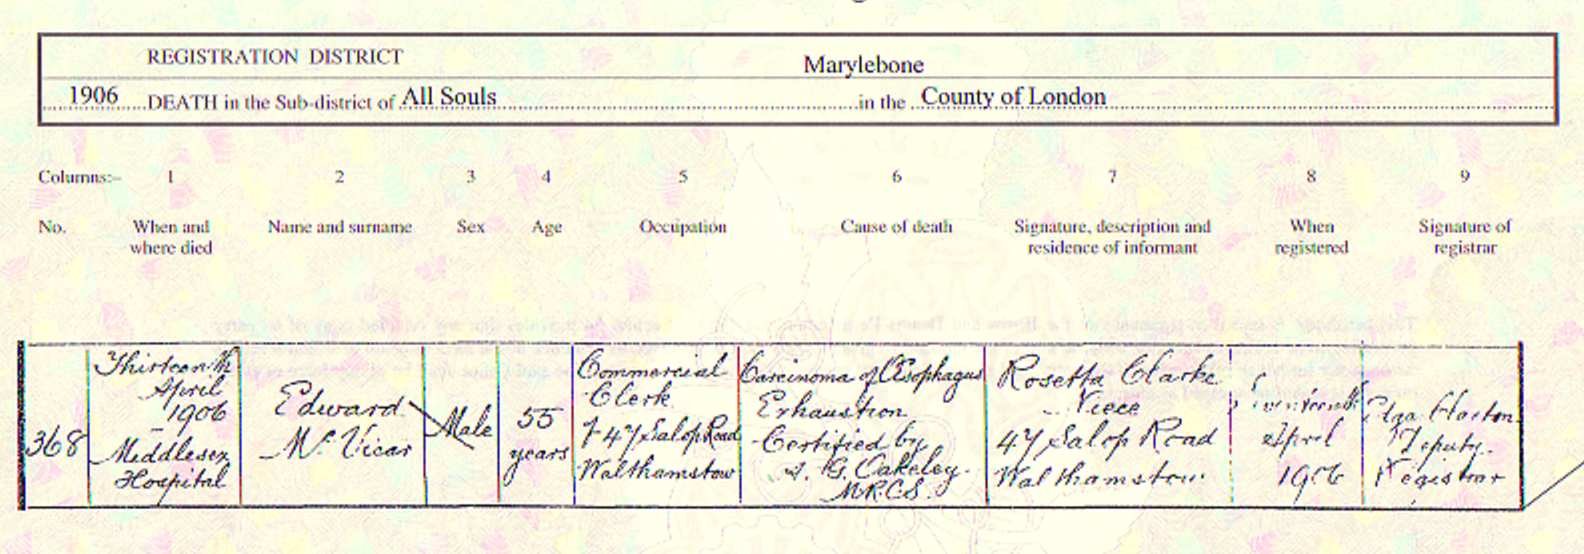 REGISTRATION DISTRICT Marylebone
1906 DEATH in the Sub-district of All Souls in the County of London
Columns:– 1 2 3 4 5 6 7 8 9
No. When and where died Name and surname Sex Age Occupation Cause of death Signature, description and residence of informant When registered Signature of registrar
368
Thirteenth
April
1906
Middlesex
Hospital
Edward
McVicar
Male
55
years
Commercial
Clerk
of 47 Salop Road
Walthamstow
Carcinoma of Œsophagus
Exhaustion
Certified by
G. Oakeley.
M.R.C.S.
Rosetta Clarke
Niece
47 Salop Road
Walthamstow
April
1906
Deputy
Registrar